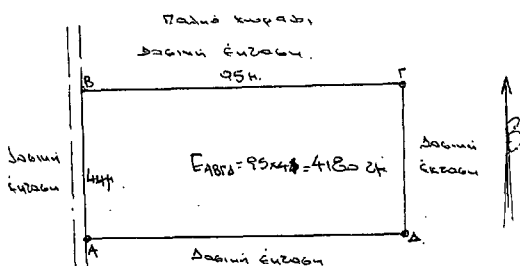 Παλιό χωράφι
Δασική έκταση.
95μ.
Β
Γ
Δασική
έκταση
44μ
Ε ΑΒΓΔ = 95×44 = 4180 τμ
Δασική
έκταση
Α
Δ
Δασική έκταση